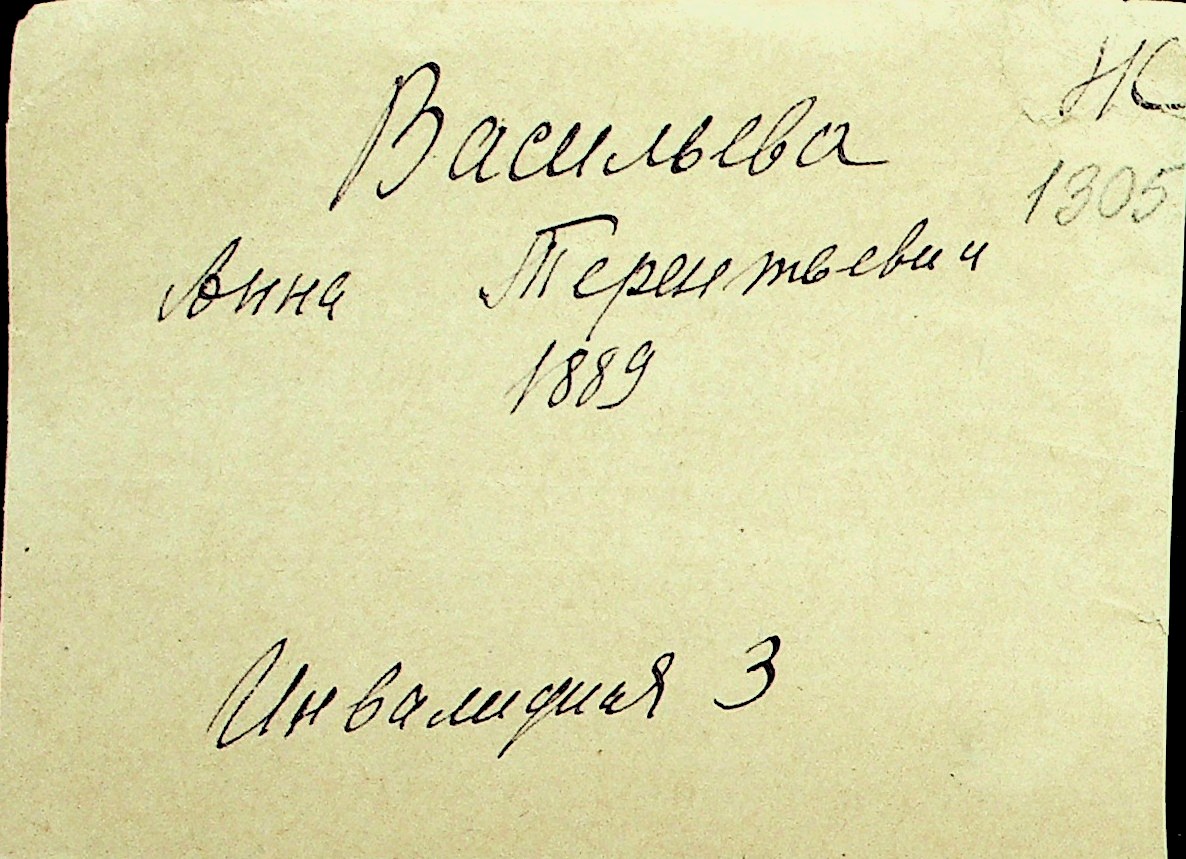 Васильева
1305
Анна Терентьевич
1889
Инвалидная 3